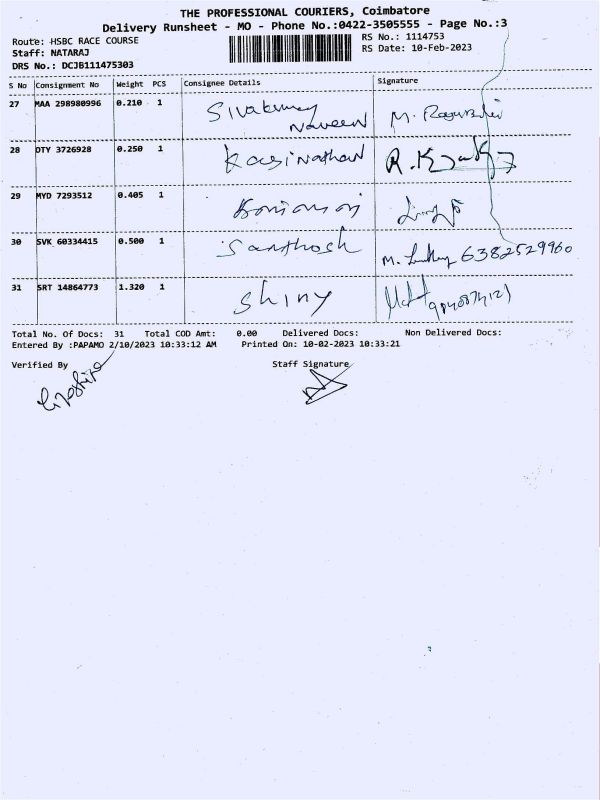 THE PROFESSIONAL COURIERS, Coimbatore
Delivery Runsheet - MO - Phone No.:0422-3505555 - Page No.:3
Route: HSBC RACE COURSE
RS No.: 1114753
Staff: NATARAJ
RS Date: 10-Feb-2023
DRS No.: DCJB111475303
S No Consignment No Weight PCS Consignee Details Signature
27 MAA 298980996 0.210 1 Sivakumar
Naveen
28 DTY 3726928 0.250 1 Kasinathan
29 MYD 7293512 0.405 1
30 SVK 60334415 0.500 1 Santhosh 6382529960
31 SRT 14864773 1.320 1 Shiny
Total No. Of Docs: 31 Total COD Amt: 0.00 Delivered Docs: Non Delivered Docs:
Entered By :PAPAMO 2/10/2023 10:33:12 AM Printed On: 10-02-2023 10:33:21
Verified By Staff Signature